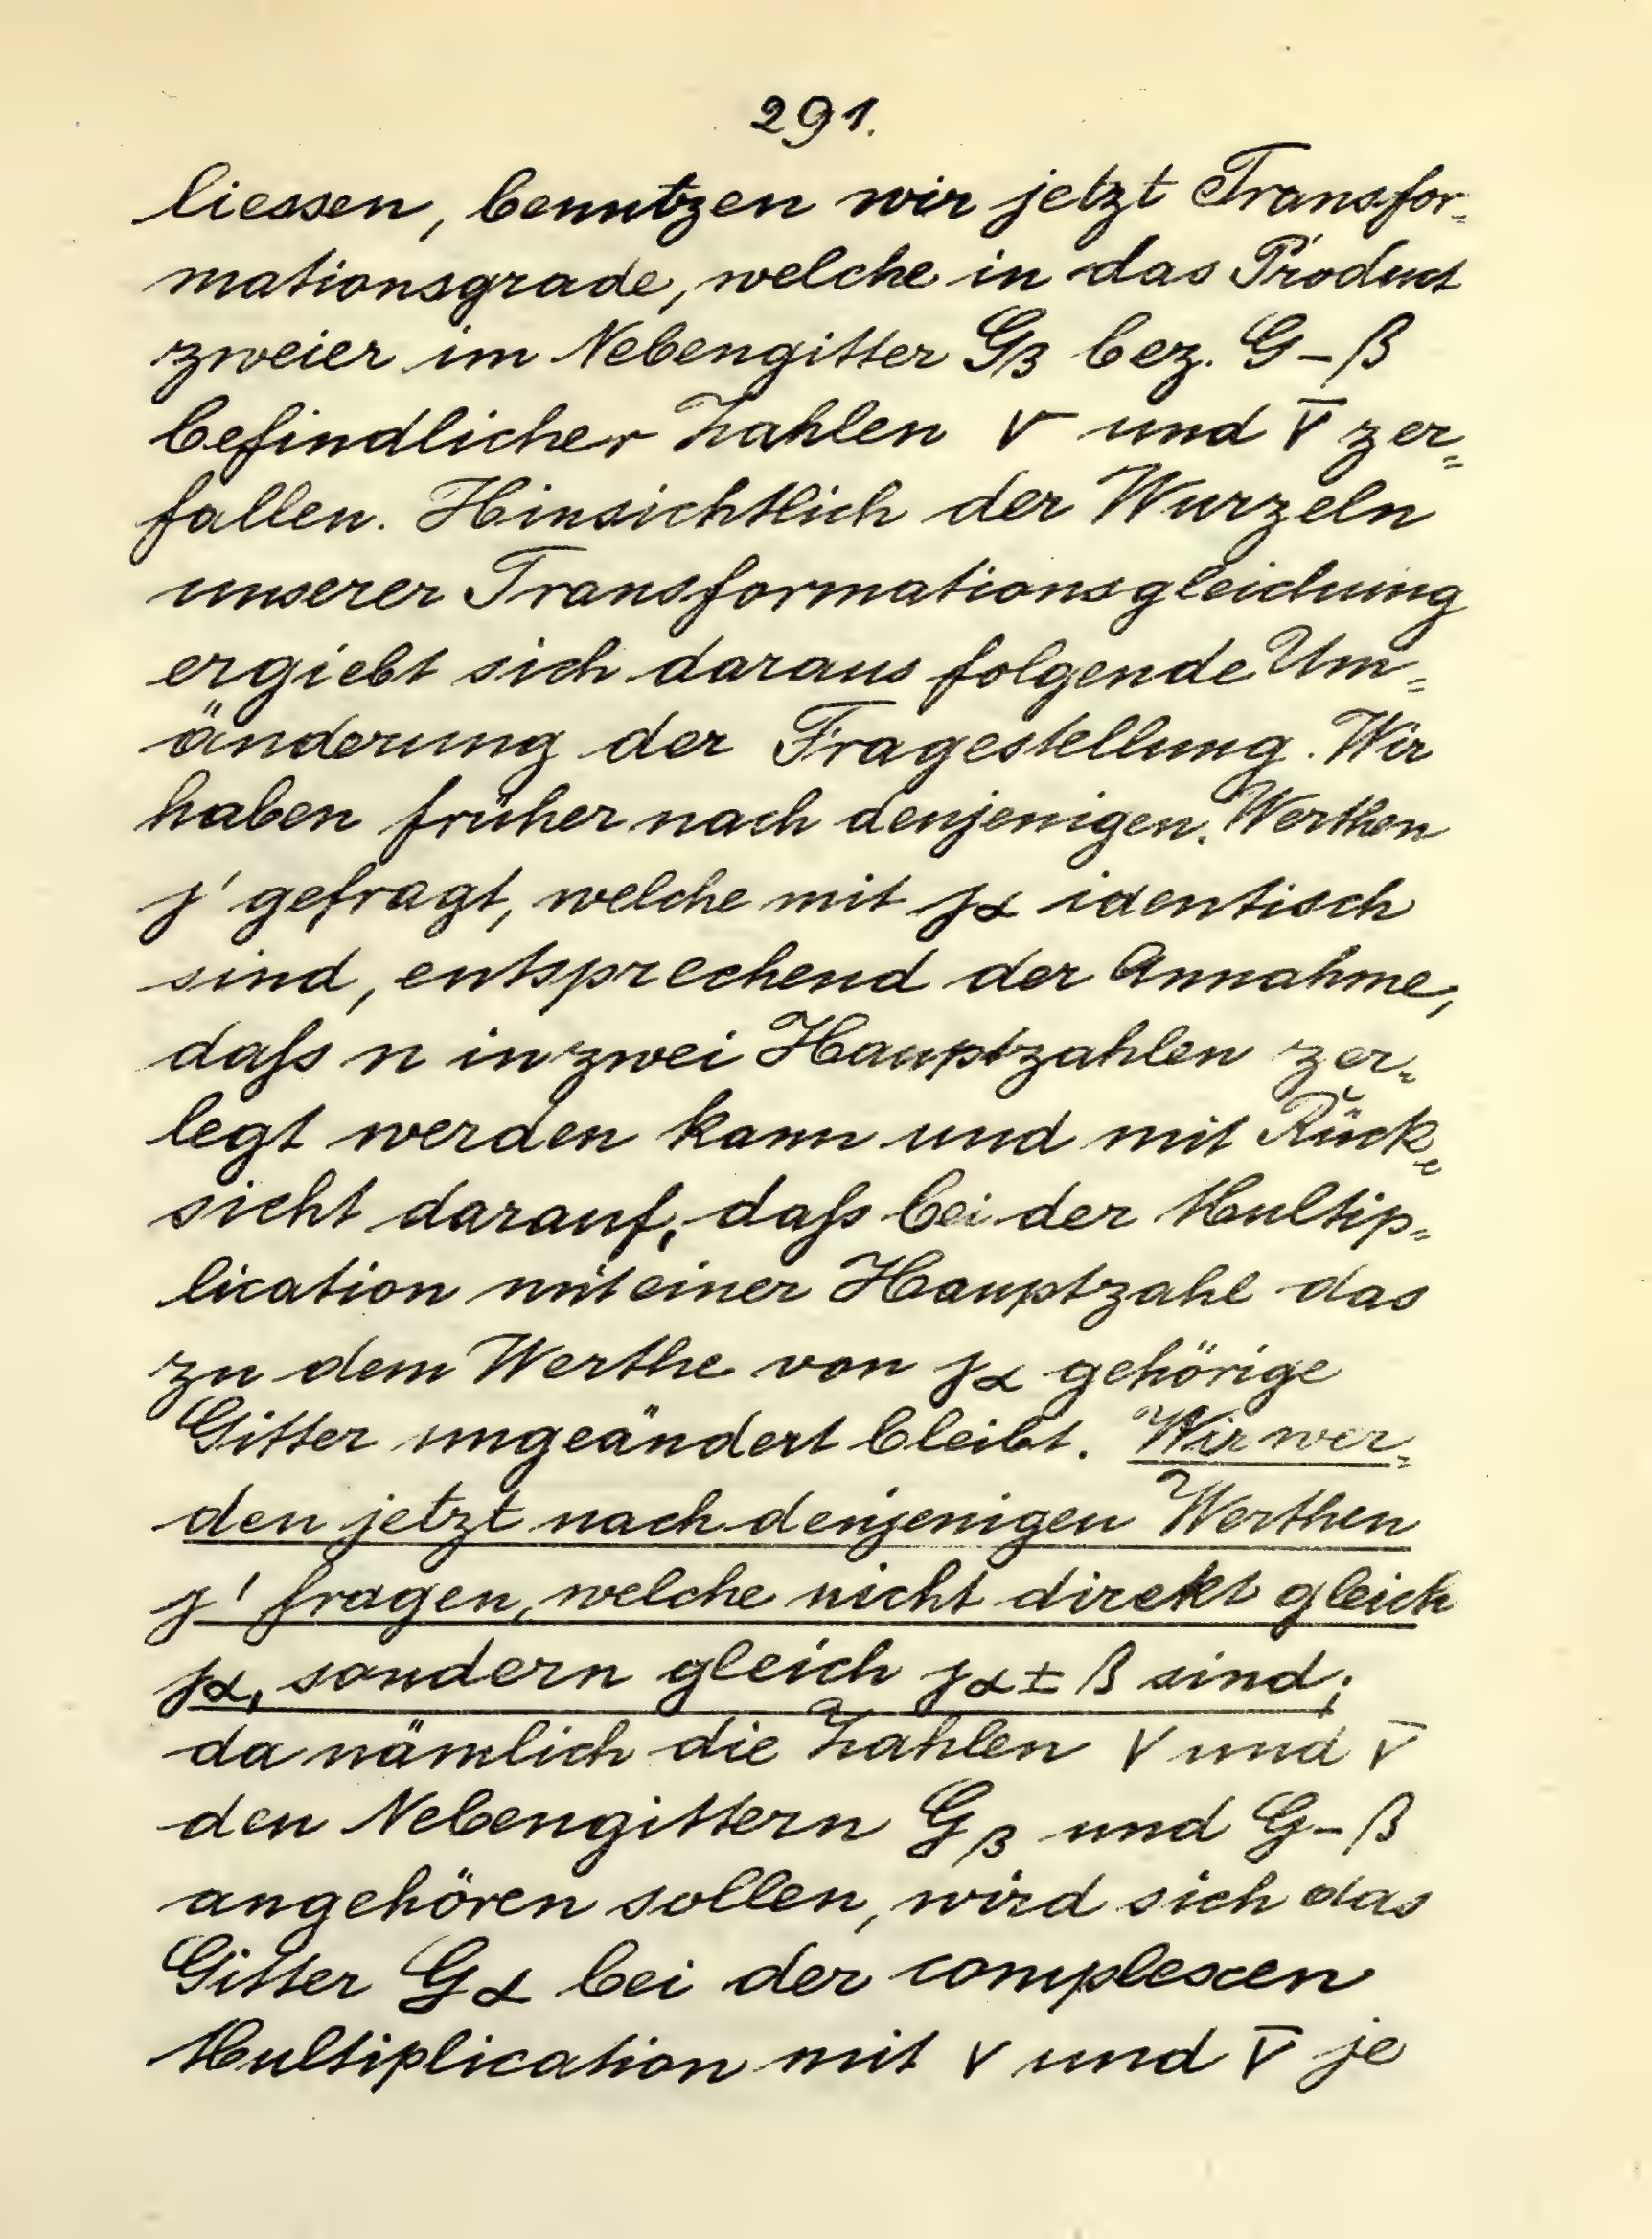 291.
liessen, benutzen wir jetzt Transfor-
mationsgrade, welche in das Product
zweier im Nebengitter Gβ bez. G-β
befindlicher Zahlen ν und ν̅ zer=
fallen. Hinsichtlich der Wurzeln
unserer Transformationsgleichung
ergiebt sich daraus folgende Um=
änderung der Fragestellung. Wir
haben früher nach denjenigen Werthen
j' gefragt, welche mit jα identisch
sind, entsprechend der Annahme,
daſs n in zwei Hauptzahlen zer=
legt werden kann und mit Rück=
sicht darauf, daſs bei der Multip=
lication mit einer Hauptzahl das
zu dem Werthe von jα gehörige
Gitter ungeändert bleibt. Wir wer=
den jetzt nach denjenigen Werthen
j' fragen, welche nicht direkt gleich
jα, sondern gleich jα±β sind;
da nämlich die Zahlen ν und ν̅
den Nebengittern Gβ und G-β
angehören sollen, wird sich das
Gitter Gα bei der complexen
Multiplication mit ν und ν̅ je